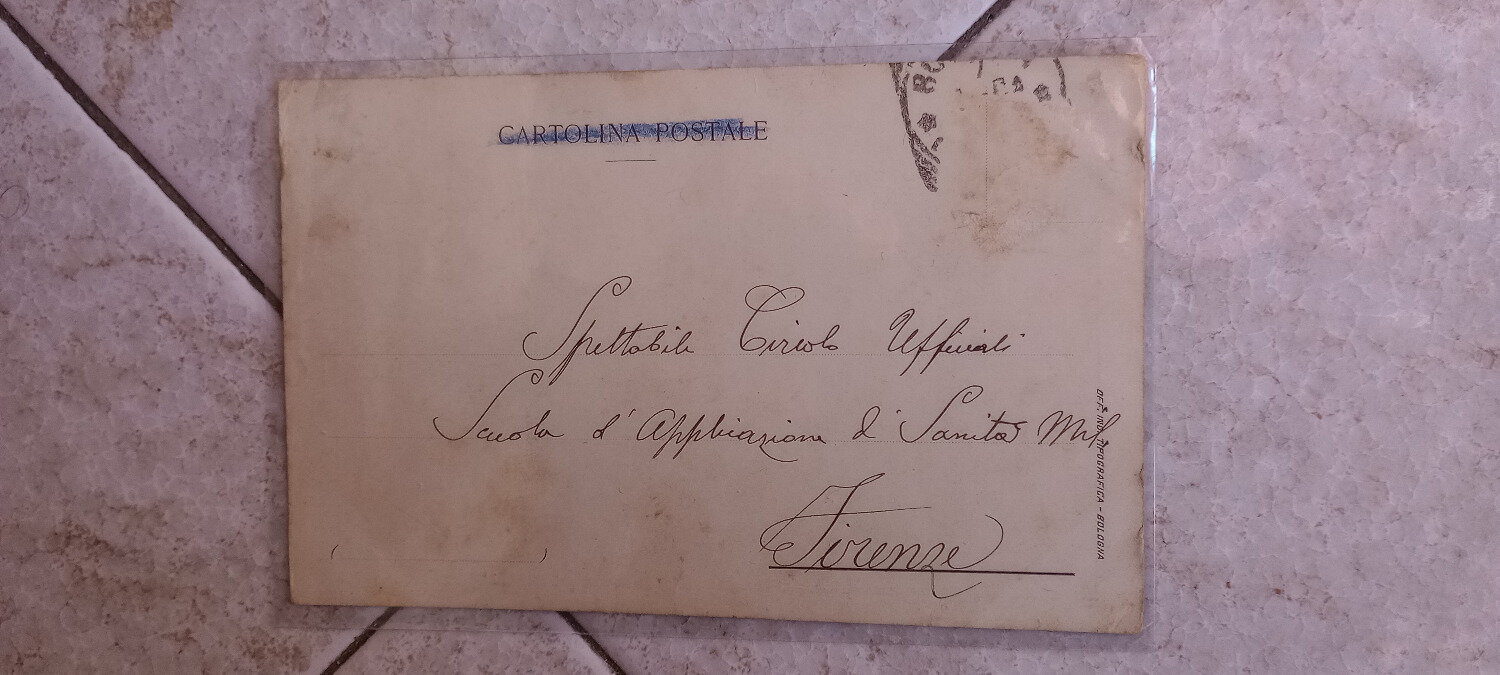 CARTOLINA POSTALE
Spettabile Circolo Ufficiali
Scuola d'Applicazione d' Sanità Mil
Firenze
OFF. IND. TIPOGRAFICA - BOLOGNA